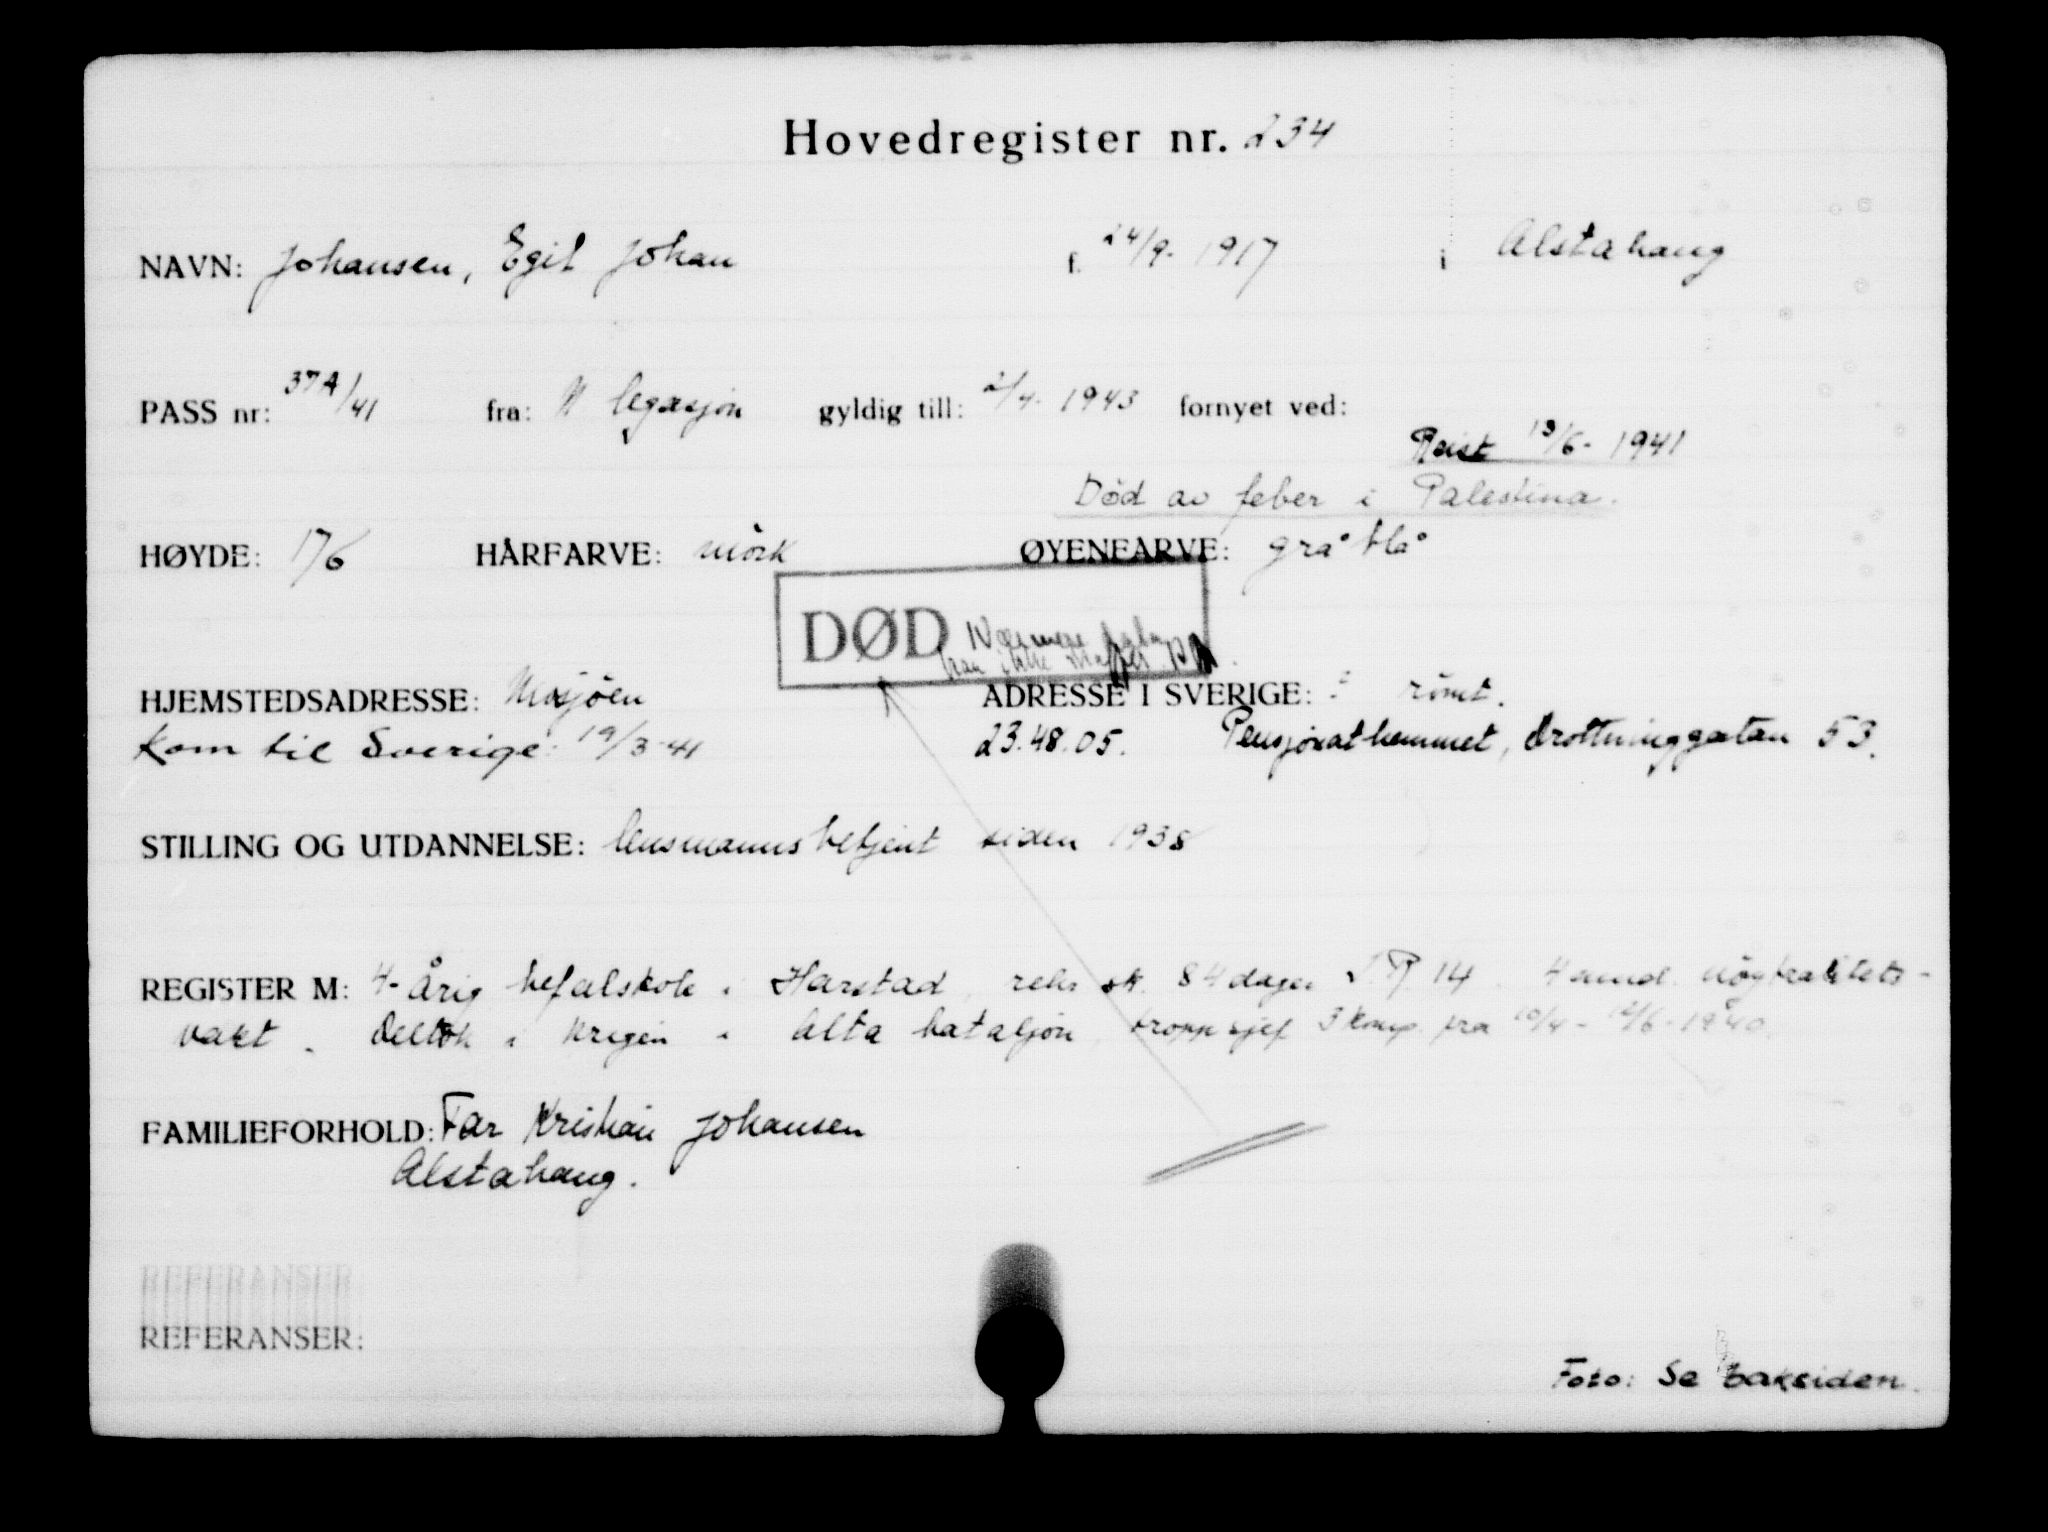 Hovedregister nr. 234
NAVN: Johansen, Egil Johan f. 24/9. 1917 i Alstahaug
PASS nr: 37A/41 fra: N legasjon gyldig till: 2/4. 1943 fornyet ved:
Reist 13/6- 1941
Død av feber i Palestina.
HØYDE: 176 HÅRFARVE: mörk ØYENFARVE: grå blå
DØD Nærmere
kan ikke skaffes.
HJEMSTEDSADRESSE: Mosjöen ADRESSE I SVERIGE: römt.
Kom til Sverige: 19/3-41 23.48.05. Pensjonathemmet, Drottninggatan 53.
STILLING OG UTDANNELSE: lensmannsbetjent siden 1938
REGISTER M: 4-årig befalskole i Harstad, rekr sk. 84 dager I R 14. 4 mnd. nöytralitets-
vakt. Deltok i krigen i Alta bataljon, troppsjef 3 komp. fra 10/4- 12/6-1940.
FAMILIEFORHOLD: Far Kristian Johansen
Alstahaug.
REFERANSER
REFERANSER:
Foto: Se baksiden.